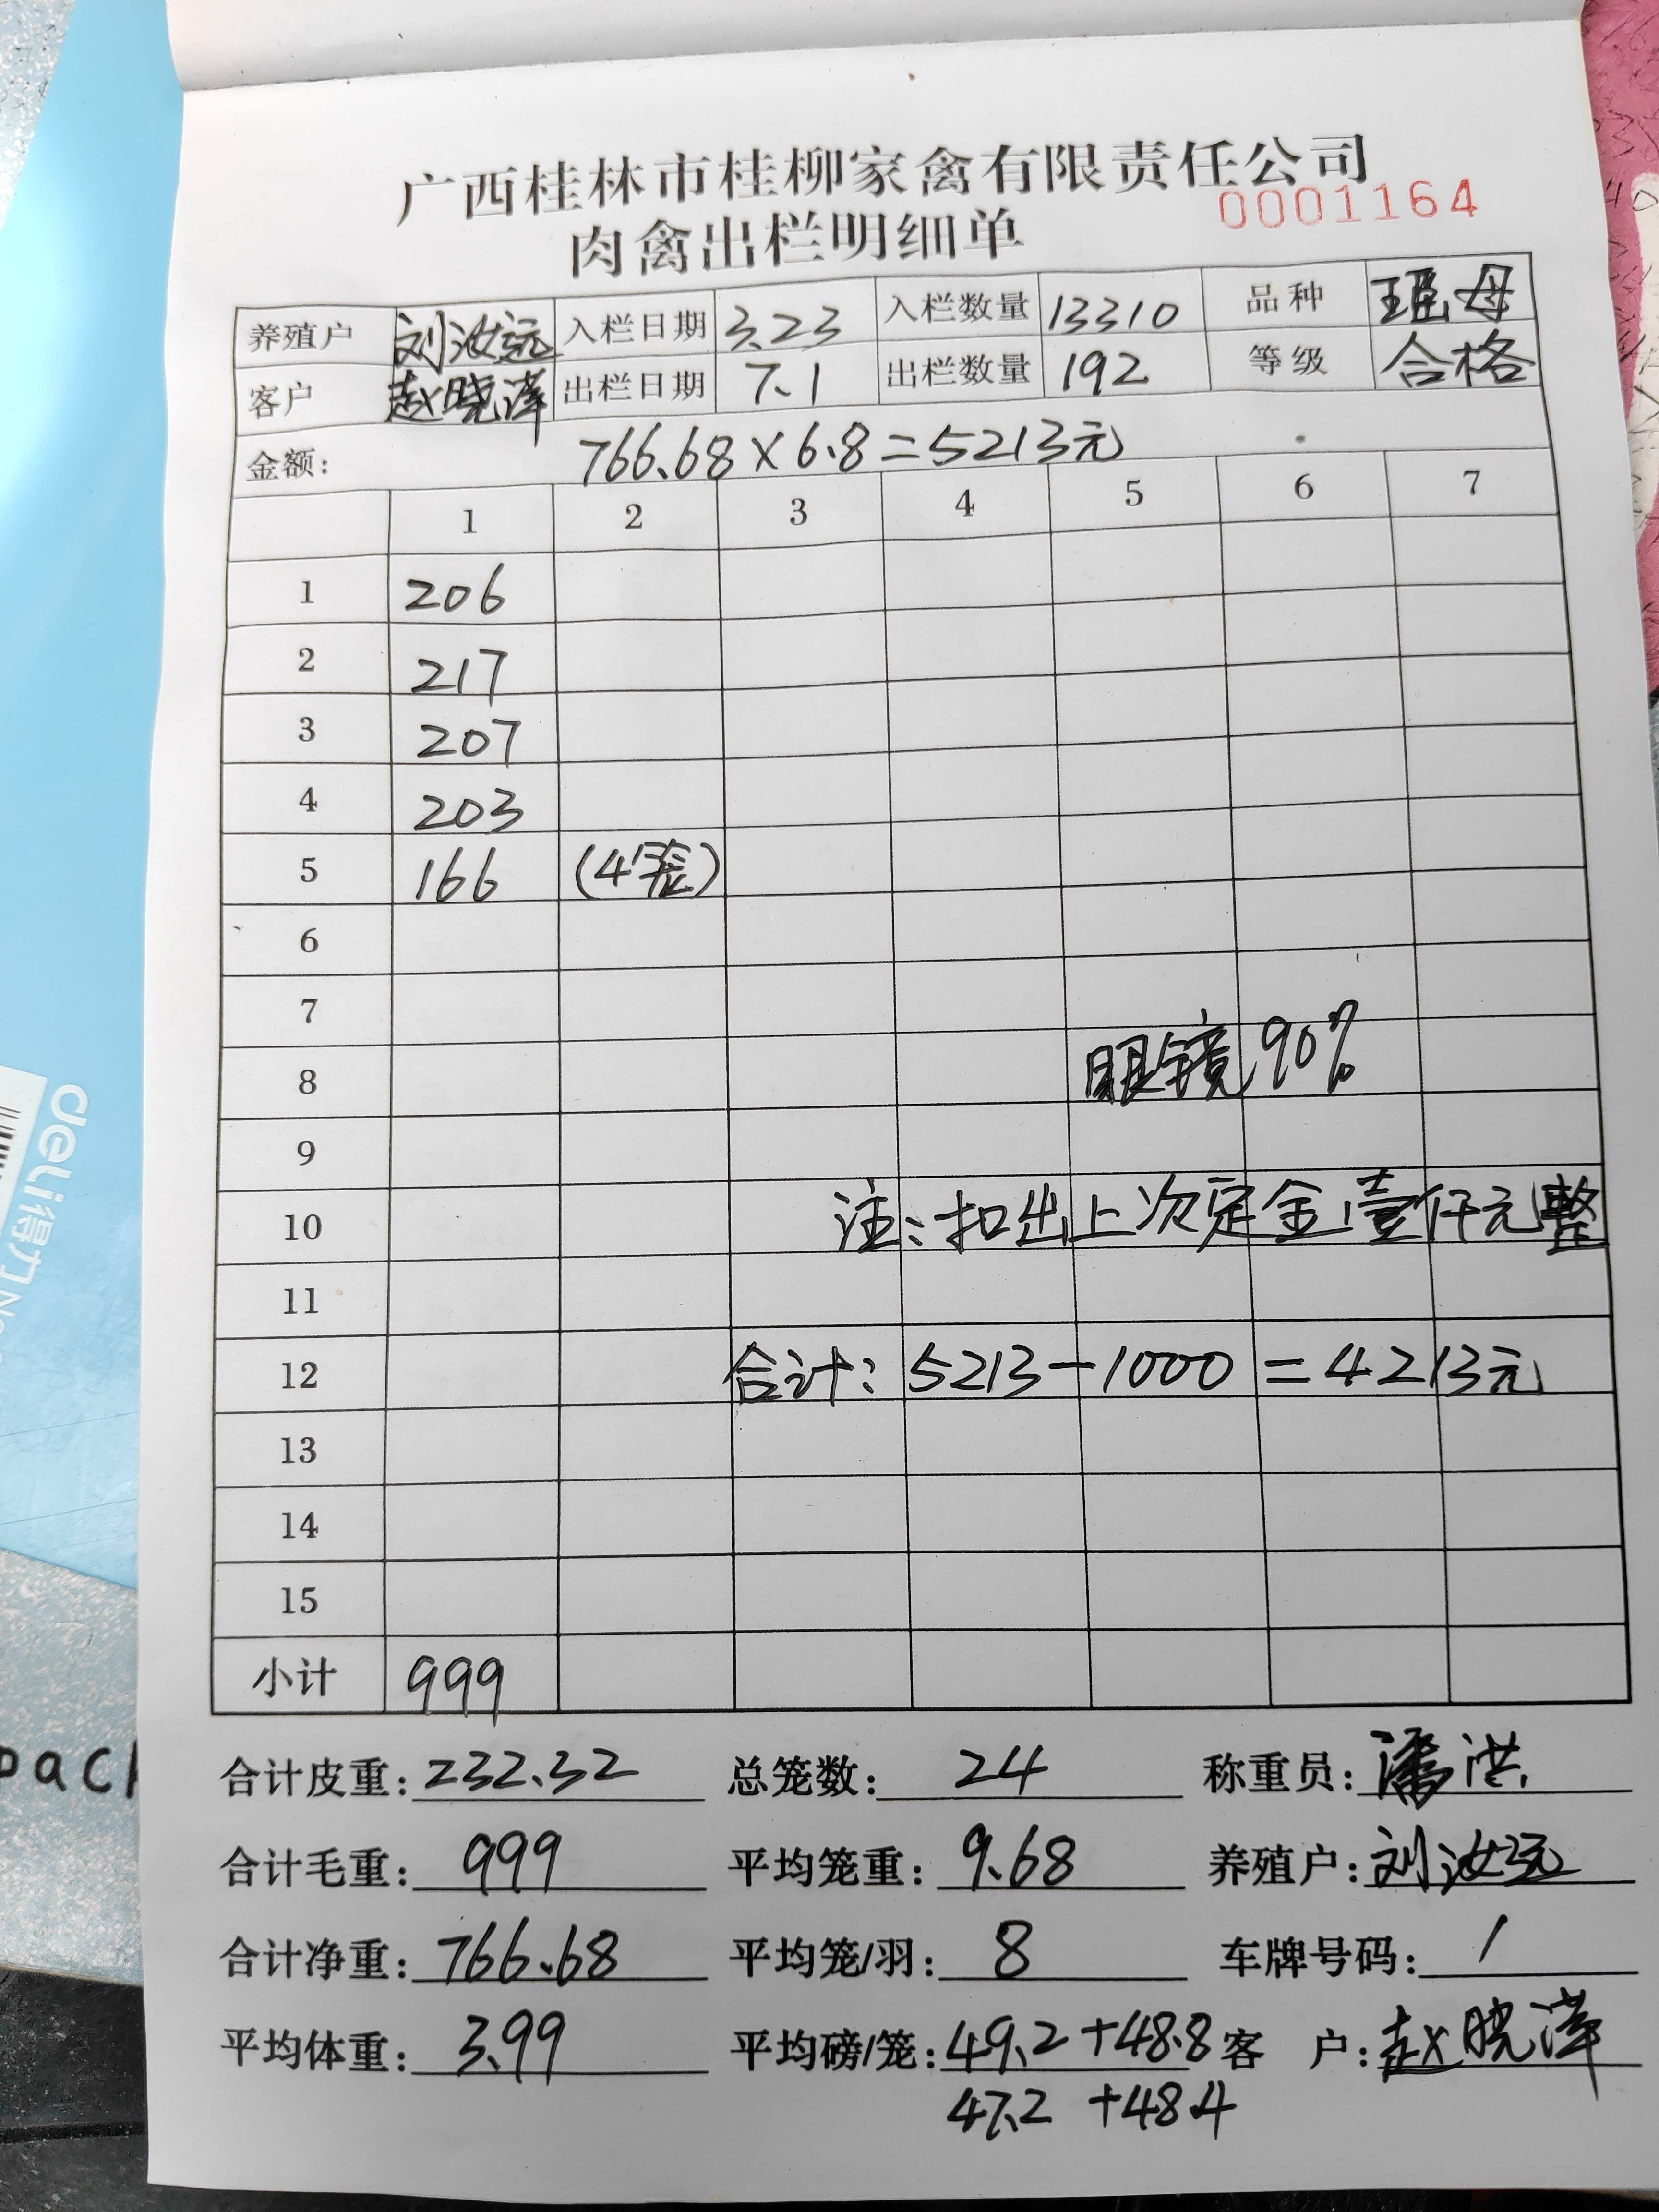 广西桂林市桂柳家禽有限责任公司
0001164
肉禽出栏明细单
养殖户 刘汝远 入栏日期 3.23 入栏数量 13310 品种 瑶母
客户 赵晓萍 出栏日期 7.1 出栏数量 192 等级 合格
金额: 766.68×6.8=5213元
1 2 3 4 5 6 7
1 206
2 217
3 207
4 203
5 166 (4笼)
6
7
8 眼镜90%
9
10 注:扣出上次定金壹仟元整
11
12 合计: 5213-1000=4213元
13
14
15
小计 999
合计皮重: 232.32 总笼数: 24 称重员: 潘洪
合计毛重: 999 平均笼重: 9.68 养殖户: 刘汝远
合计净重: 766.68 平均笼/羽: 8 车牌号码: /
平均体重: 3.99 平均磅/笼: 49.2+48.8 客 户: 赵晓萍
47.2 +48.4
deli得力
pack